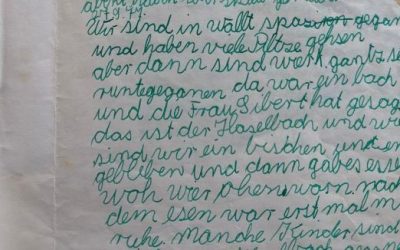 17.9.74.
Wir sind in wallt spaziren gegan
und haben viele Piltze gehsen
aber dann sind wir gantz
runtegeganen da war ein bach
und die Frau Sibert hat gesag
das ist der Haselbach und wir
sind wir ein bischen unden
gebliben und dann gab es esse
woh wier ohen worn nach
dem esen war erst mal m
ruhe. Manche Kinder sind